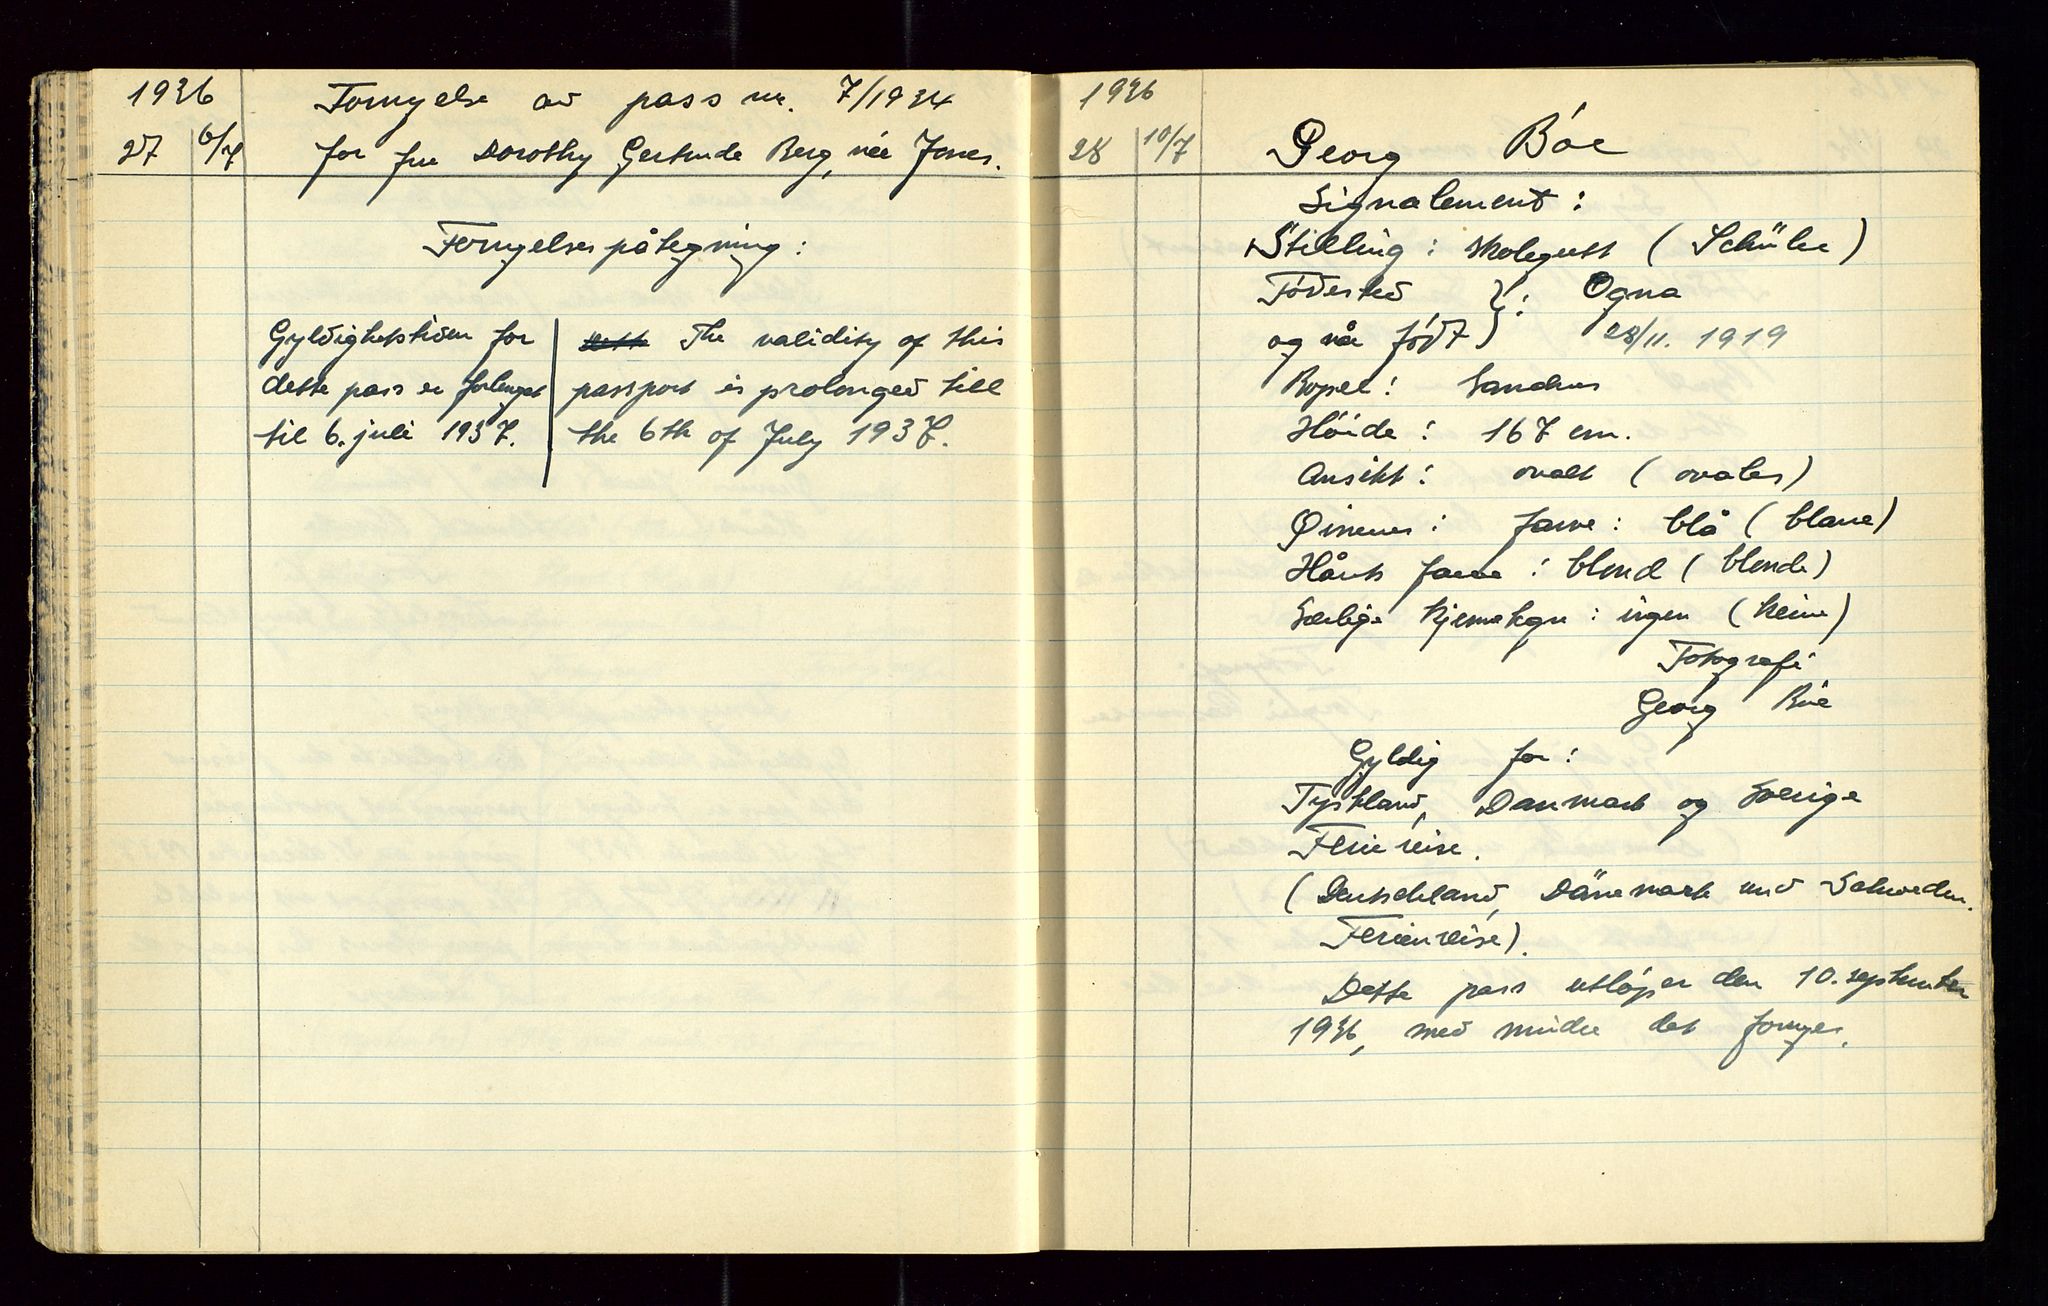 1936
Fornyelse av pass nr. 7/1934
27 6/7 for fru Dorothy Gertrude Berg, née Jones.
Fornyelsespåtegning:
Gyldighetstiden for
dette pass er forlenget
til 6. juli 1937.
The validity of this
passport is prolonged till
the 6th of July 1937.
1936
28 10/7 Georg Bóe
Signalement:
Stilling: skolegutt (Schüler)
Fødested
og når født }: Ogna
28/11. 1919
Bopel: Sandnes
Høide: 167 cm.
Ansikt: ovalt (ovales)
Øinenes: farve: blå (blaue)
Hårets farve: blond (blonde)
Særlige kjennetegn: ingen (keine)
Fotografi
Georg Bóe
Gyldig for:
Tyskland, Danmark og Sverige
Feriereise.
(Deutschland, Dänemark und Schweden.
Ferienreise).
Dette pass utløper den 10. september
1936, med mindre det fornyes.